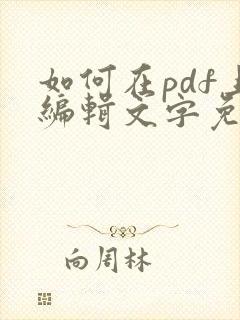 如何在pdf上
编辑文字免
向周林